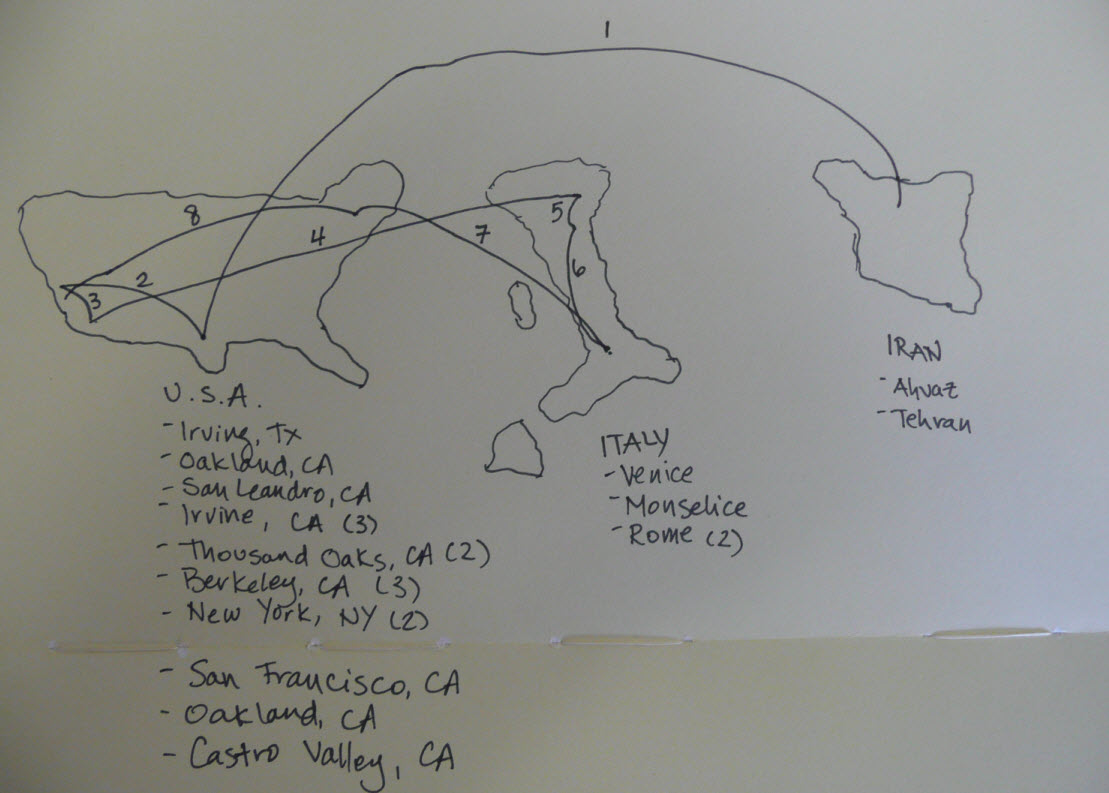 1
8
4
2
3
5
7
6
U.S.A.
- Irving, TX
- Oakland, CA
- San Leandro, CA
- Irvine, CA (3)
- Thousand Oaks, CA (2)
- Berkeley, CA (3)
- New York, NY (2)
- San Francisco, CA
- Oakland, CA
- Castro Valley, CA
ITALY
- Venice
- Monselice
- Rome (2)
IRAN
- Ahvaz
- Tehran